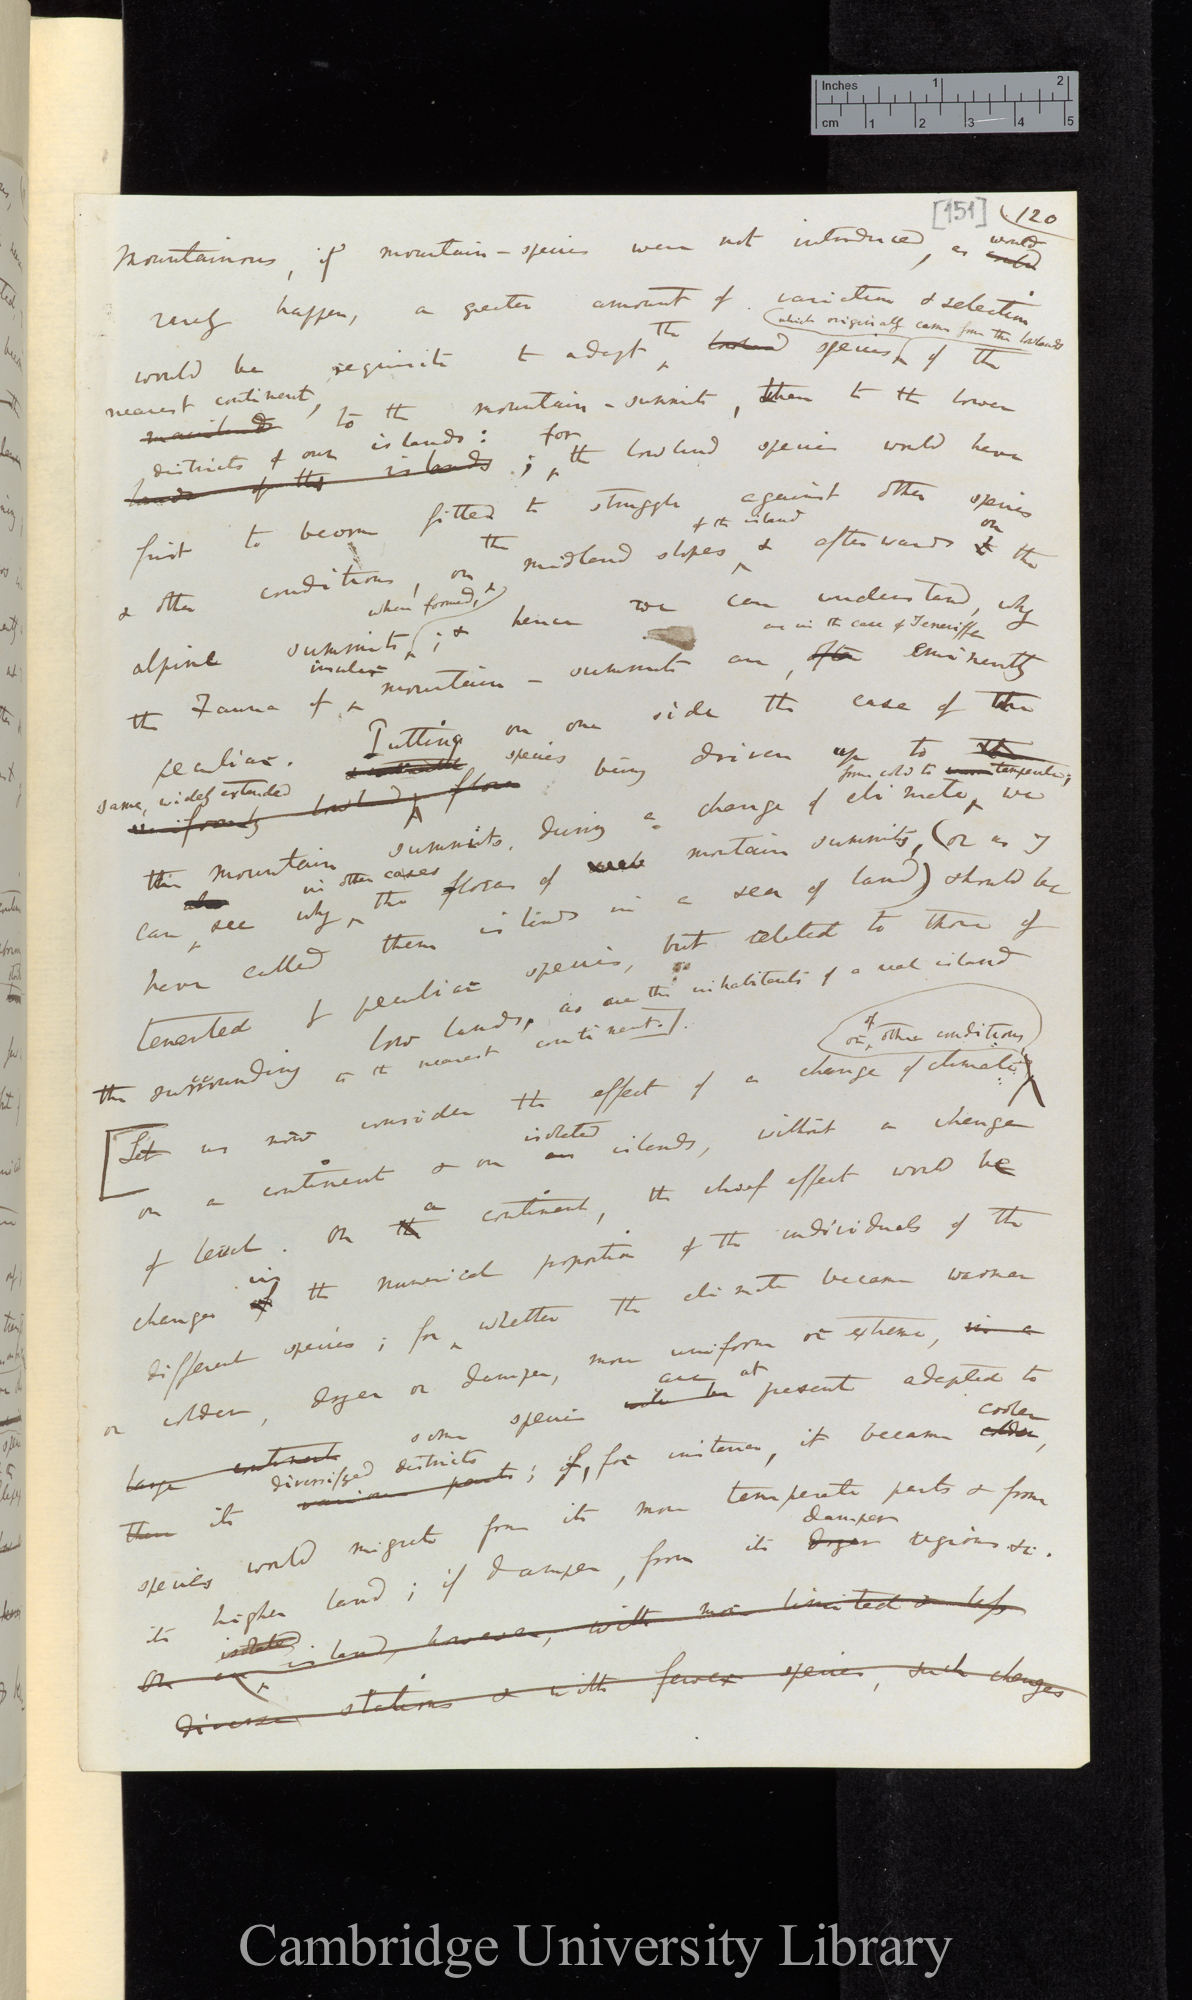 Inches 1 2
cm 1 2 3 4 5
[151] 120
Mountainous, if mountain-species were not introduced, as would
rarely happen, a greater amount of variation & selection
which originally came from the lowlands
would be requisite to adapt the lowland species of the
nearest continent,
mainland to the mountain-summits, than to the lower
districts of our islands: for
lands of the islands; the lowland species would have
first to become fitted to struggle against other species
of the island on
& other conditions, on the midland slopes & afterwards to the
when formed, &
alpine summits; & hence we can understand, why
insular as in the case of Teneriffe
the Fauna of mountain-summits are, often eminently
peculiar. Putting on one side the case of the
same, widely extended species being driven up to the
uniformly lowland flora from cold to warm temperate;
their mountain summits, during a change of climate, we
also in other cases
can see why, the floras of mountain summits, (or as I
have called them islands in a sea of land) should be
tenanted by peculiar species, but related to those of
the surrounding low lands, as are the inhabitants of a real island
to the nearest continent.].
or of other conditions
[Let us now consider the effect of a change of climate
isolated
on a continent & on an islands, without a change
of level. On the a continent, the chief effect would be
in
changes of the numerical proportion of the individuals of the
different species; for whether the climate became warmer
or colder, dryer or damper, more uniform or extreme, in a
large continent some species are at present adapted to
diversified districts cooler
then its various parts; if, for instance, it became colder,
species would migrate from its more temperate parts & from
damper
its higher land; if damper, from its dryer regions &c.
isolated
On an island, however, with more limited & less
diverse stations & with fewer species, such changes
Cambridge University Library